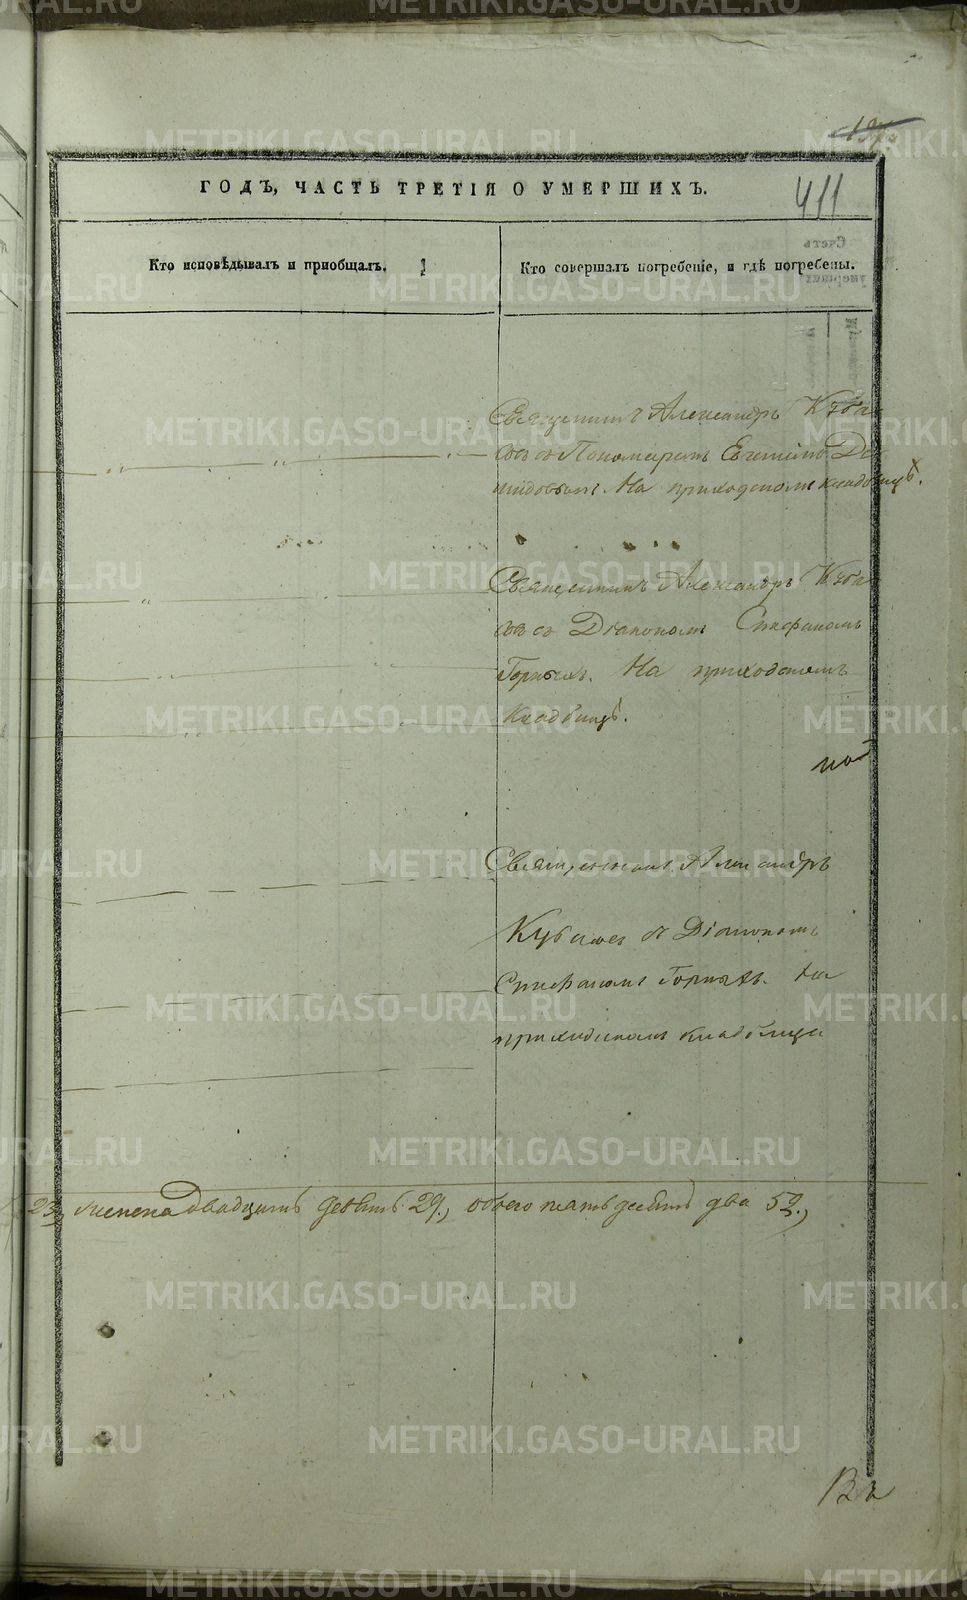 ГОДЪ, ЧАСТЬ ТРЕТІЯ О УМЕРШИХЪ.
411
Кто исповѣдывалъ и приобщалъ.
Кто совершалъ погребеніе, и гдѣ погребены.
Священникъ Александръ Куба
съ Пономаремъ Евгеніемъ Де
мидовымъ. На приходскомъ кладбищѣ.
Священникъ Александръ Куба
съ Діакономъ Стефаномъ
Горныхъ. На приходскомъ
Кладбищѣ.
Священникъ Александръ
съ Діакономъ
Стефаномъ Горныхъ. На
приходскомъ кладбище
23, женска двадцать девять 29., обоего пятьдесятъ два 52.,
METRIKI.GASO-URAL.RU